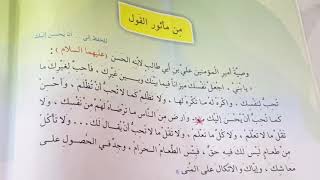 من مأثور القول
للحفظ إلى أن يحسن إليك
وصية أمير المؤمنين علي بن أبي طالب لابنه الحسن (عليهما السلام)
يا بني، اجعل نفسك ميزاناً فيما بينك وبين غيرك، فأحبّ لغيرك ما
تحب لنفسك، واكره له ما تكره لها، ولا تظلم كما لا تحب أن تُظلم، وأحسن
كما تحب أن يُحسن إليك، وارض من الناس ما ترضاه لهم من نفسك، ولا
تقل ما لا تعلم، ولا كل ما تعلم، ولا تقل ما لا تحب أن يقال لك... ولا تأكل
من طعام ليس لك فيه حق، فبئس الطعام الحرام، وجد في الحصول على
معاشك، وإياك والاتكال على المنى